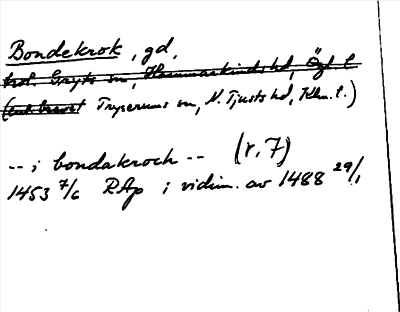 Bondekrok, gd,
trol. Gryts sn, Hammarkinds hd, Ögl l
(enl brevet Tryserums sn, N. Tjusts hd, Klm. l.)
-- i bondakroch -- (r. 7)
1453 7/6 RAp i vidim. av 1488 29/1